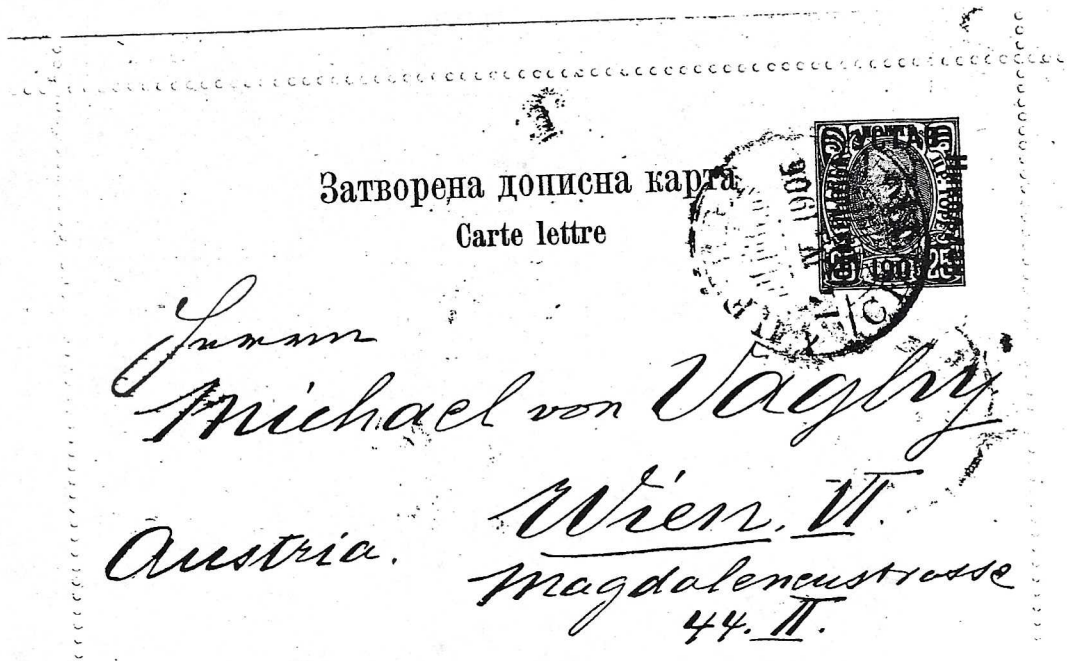 Затворена дописна карта
Carte lettre
УСТАВ
25 190 25
1906
Herrn
Michael von Vaghy
Wien. VI.
Austria.
Magdalenenstrasse
44. II.